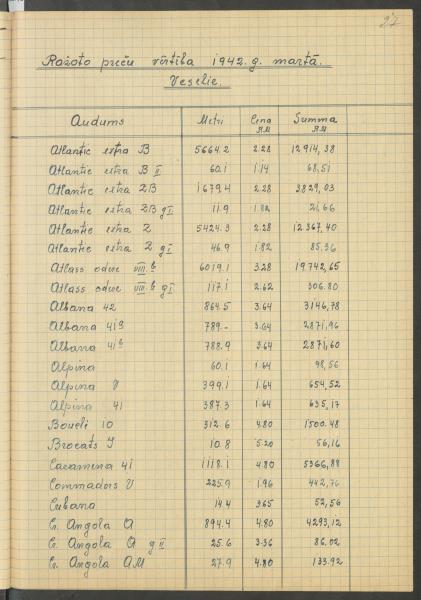 27
Ražoto preču vērtība 1942. g. martā.
Veselie.
Audums Metri Cena RM Summa RM
Atlantic extra B 5664.2 2.28 12914,38
Atlantic extra B II 60.1 1.14 68,51
Atlantic extra 2B 1679.4 2.28 3829,03
Atlantic extra 2B g I 11.9 1.82 21,66
Atlantic extra 2 5424.3 2.28 12367,40
Atlantic extra 2 g I 46.9 1.82 85,36
Atlass odere VIII b 6019.1 3.28 19742,65
Atlass odere VIII b g I 117.1 2.62 306.80
Albana 42 864.5 3.64 3146,78
Albana 41 a 789.- 3.64 2871,96
Albana 41 b 788.9 3.64 2871,60
Alpina 60.1 1.64 98,56
Alpina V 399.1 1.64 654,52
Alpina 41 387.3 1.64 635,17
Bouclé 10 312.6 4.80 1500.48
Brocats I 10.8 5.20 56,16
Casamena 41 1118.1 4.80 5366,88
Commadors V 225.9 1.96 442,76
Cubana 14.4 3.65 52,56
Cr. Angola A 894.4 4.80 4293,12
Cr. Angola A g II 25.6 3.36 86.02
Cr. Angola AM 27.9 4.80 133.92